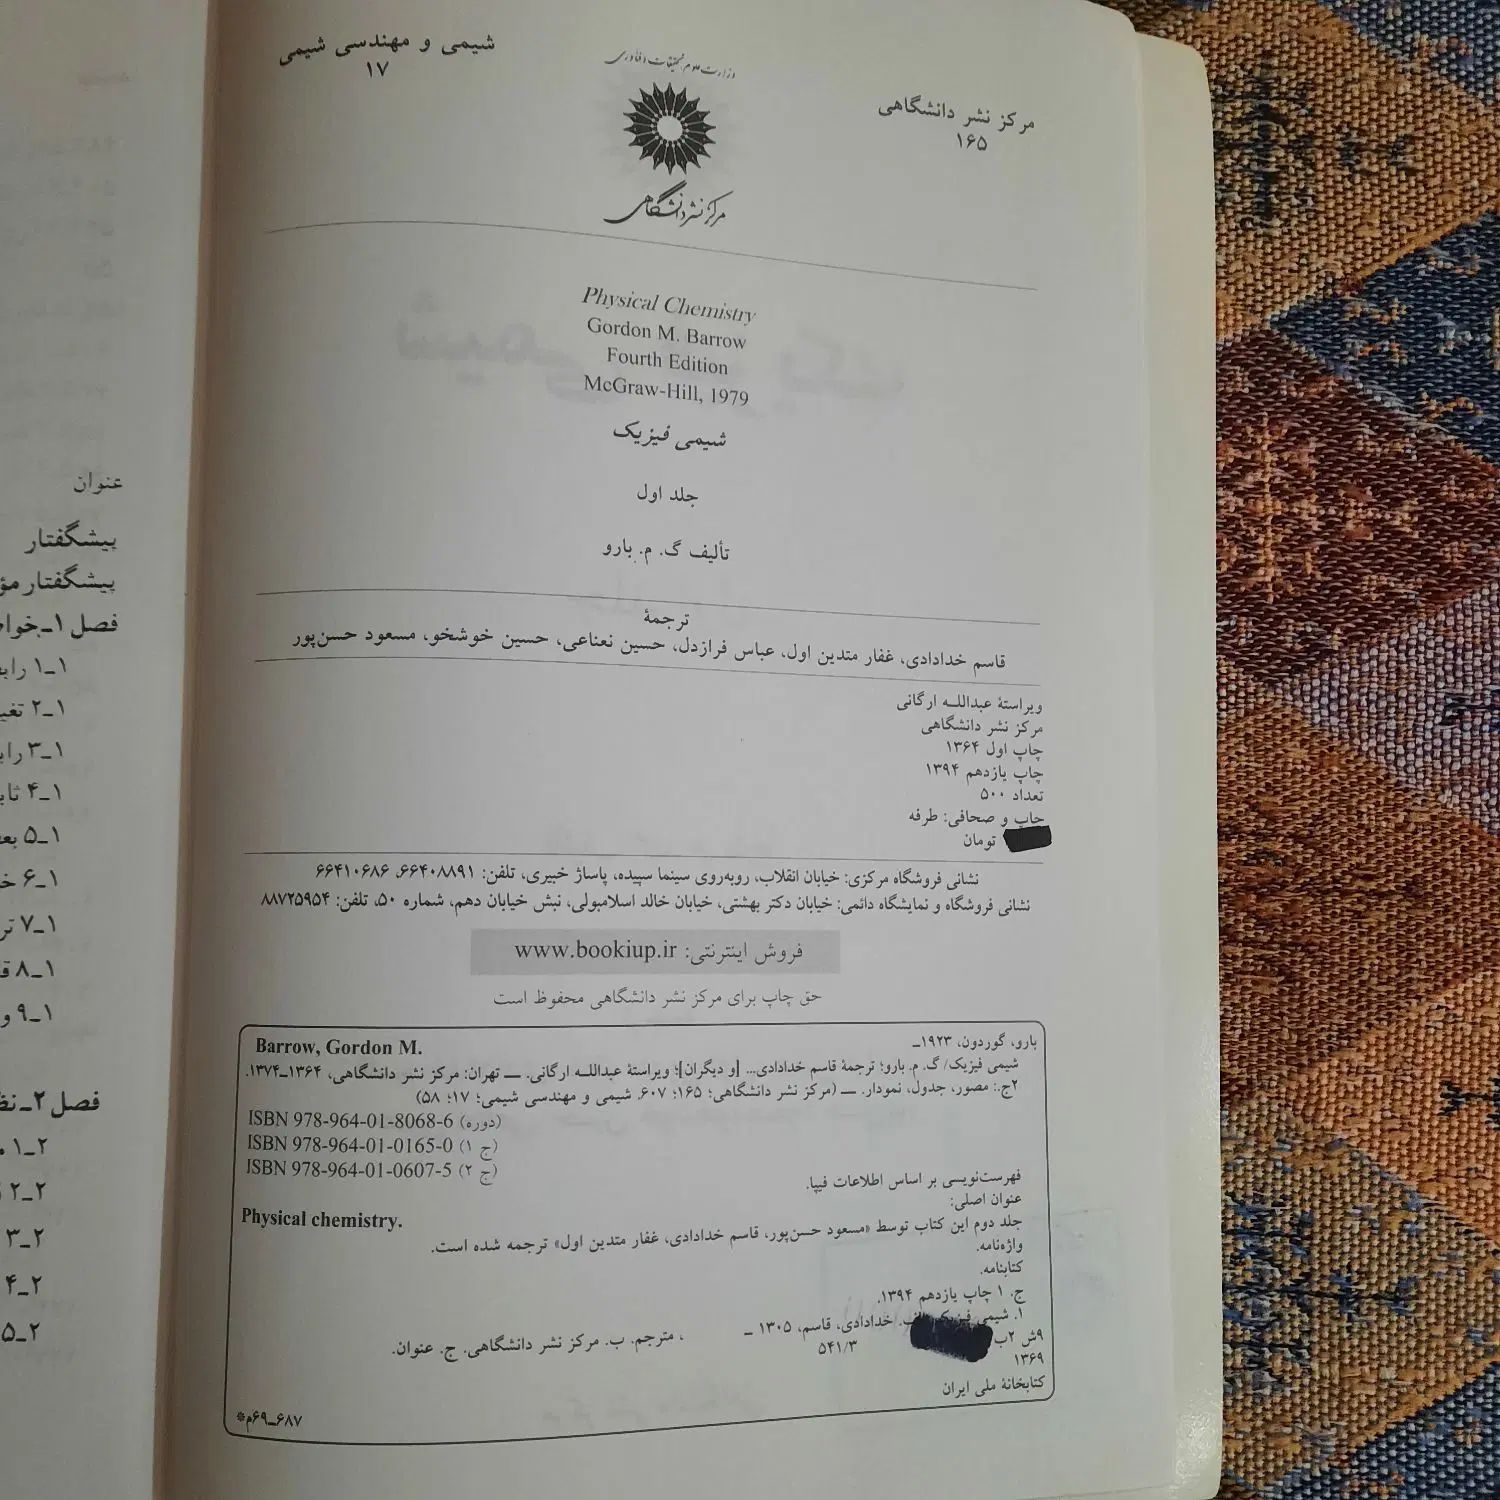 شیمی و مهندسی شیمی
۱۷
وزارت علوم، تحقیقات و فناوری
مرکز نشر دانشگاهی
مرکز نشر دانشگاهی
۱۶۵
Physical Chemistry
Gordon M. Barrow
Fourth Edition
McGraw-Hill, 1979
شیمی فیزیک
جلد اول
تألیف گ. م. بارو
ترجمهٔ
قاسم خدادادی، غفار متدین اول، عباس فرازدل، حسین نعناعی، حسین خوشخو، مسعود حسن‌پور
ویراستهٔ عبداللـه ارگانی
مرکز نشر دانشگاهی
چاپ اول ۱۳۶۴
چاپ یازدهم ۱۳۹۴
تعداد ۵۰۰
چاپ و صحافی: طرفه
تومان
نشانی فروشگاه مرکزی: خیابان انقلاب، روبه‌روی سینما سپیده، پاساژ خبیری، تلفن: ۶۶۴۰۸۸۹۱، ۶۶۴۱۰۶۸۶
نشانی فروشگاه و نمایشگاه دائمی: خیابان دکتر بهشتی، خیابان خالد اسلامبولی، نبش خیابان دهم، شماره ۵۰، تلفن: ۸۸۷۲۵۹۵۴
فروش اینترنتی: www.bookiup.ir
حق چاپ برای مرکز نشر دانشگاهی محفوظ است
بارو، گوردون، ۱۹۲۳ـ
Barrow, Gordon M.
شیمی فیزیک/ گ. م. بارو؛ ترجمهٔ قاسم خدادادی... [و دیگران]؛ ویراستهٔ عبداللـه ارگانی. ـــ تهران: مرکز نشر دانشگاهی، ۱۳۶۴ـ۱۳۷۴.
۲ج.: مصور، جدول، نمودار. ـــ (مرکز نشر دانشگاهی؛ ۱۶۵؛ ۶۰۷. شیمی و مهندسی شیمی؛ ۱۷؛ ۵۸)
ISBN 978-964-01-8068-6 (دوره)
ISBN 978-964-01-0165-0 (ج ۱)
ISBN 978-964-01-0607-5 (ج ۲)
فهرست‌نویسی بر اساس اطلاعات فیپا.
عنوان اصلی:
Physical chemistry.
جلد دوم این کتاب توسط «مسعود حسن‌پور، قاسم خدادادی، غفار متدین اول» ترجمه شده است.
واژه‌نامه.
کتابنامه.
ج. ۱ چاپ یازدهم ۱۳۹۴.
۱. شیمی فیزیک. الف. خدادادی، قاسم، ۱۳۰۵ ـ ، مترجم. ب. مرکز نشر دانشگاهی. ج. عنوان.
۹ش ۲ب ۵۴۱/۳
۱۳۶۹
کتابخانهٔ ملی ایران
۶۸۷ـ۶۹م*
عنوان
پیشگفتار
پیشگفتار مؤ
فصل ۱ـ خوا
۱ـ۱ راب
۱ـ۲ تغی
۱ـ۳ راب
۱ـ۴ ثاب
۱ـ۵ بع
۱ـ۶ خ
۱ـ۷ تر
۱ـ۸ ق
۱ـ۹ و
فصل ۲ـ نظ
۲ـ۱
۲ـ۲
۲ـ۳
۲ـ۴
۲ـ۵